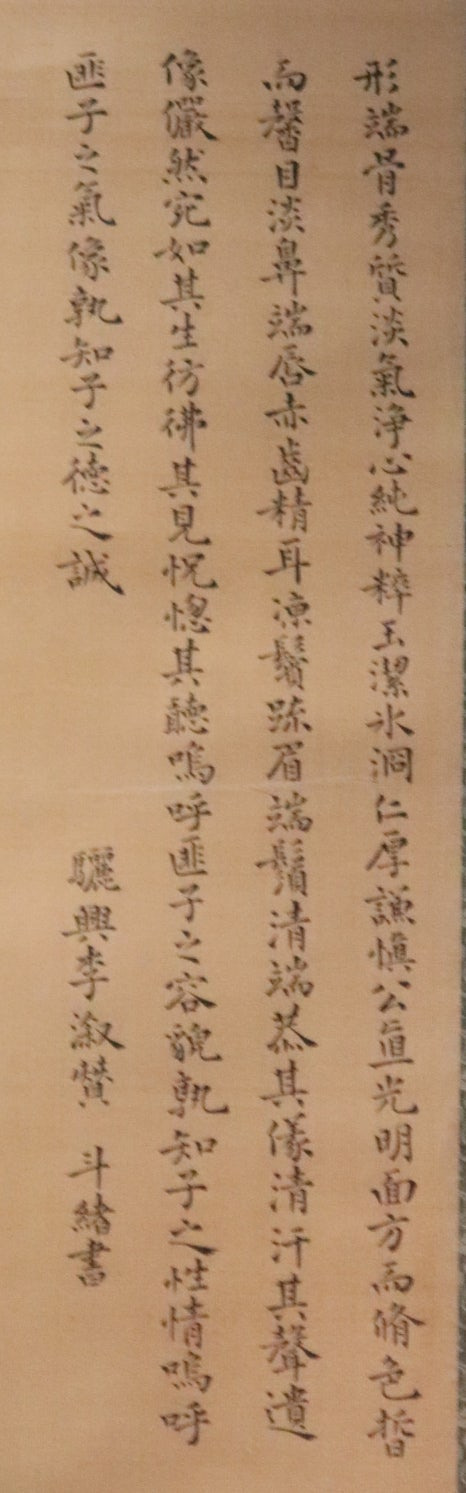 形端骨秀質淡氣淨心純神粹玉潔氷洞仁厚謙愼公直光明面方而脩色晳
而馨目淡鼻端唇赤齒精耳凉鬢踈眉端鬚清端恭其儀清汗其聲遺
像儼然宛如其生彷彿其見怳惚其聽嗚呼匪子之容貌孰知子之性情嗚呼
匪子之氣像孰知子之德之誠
驪興李潊贊　斗緖書